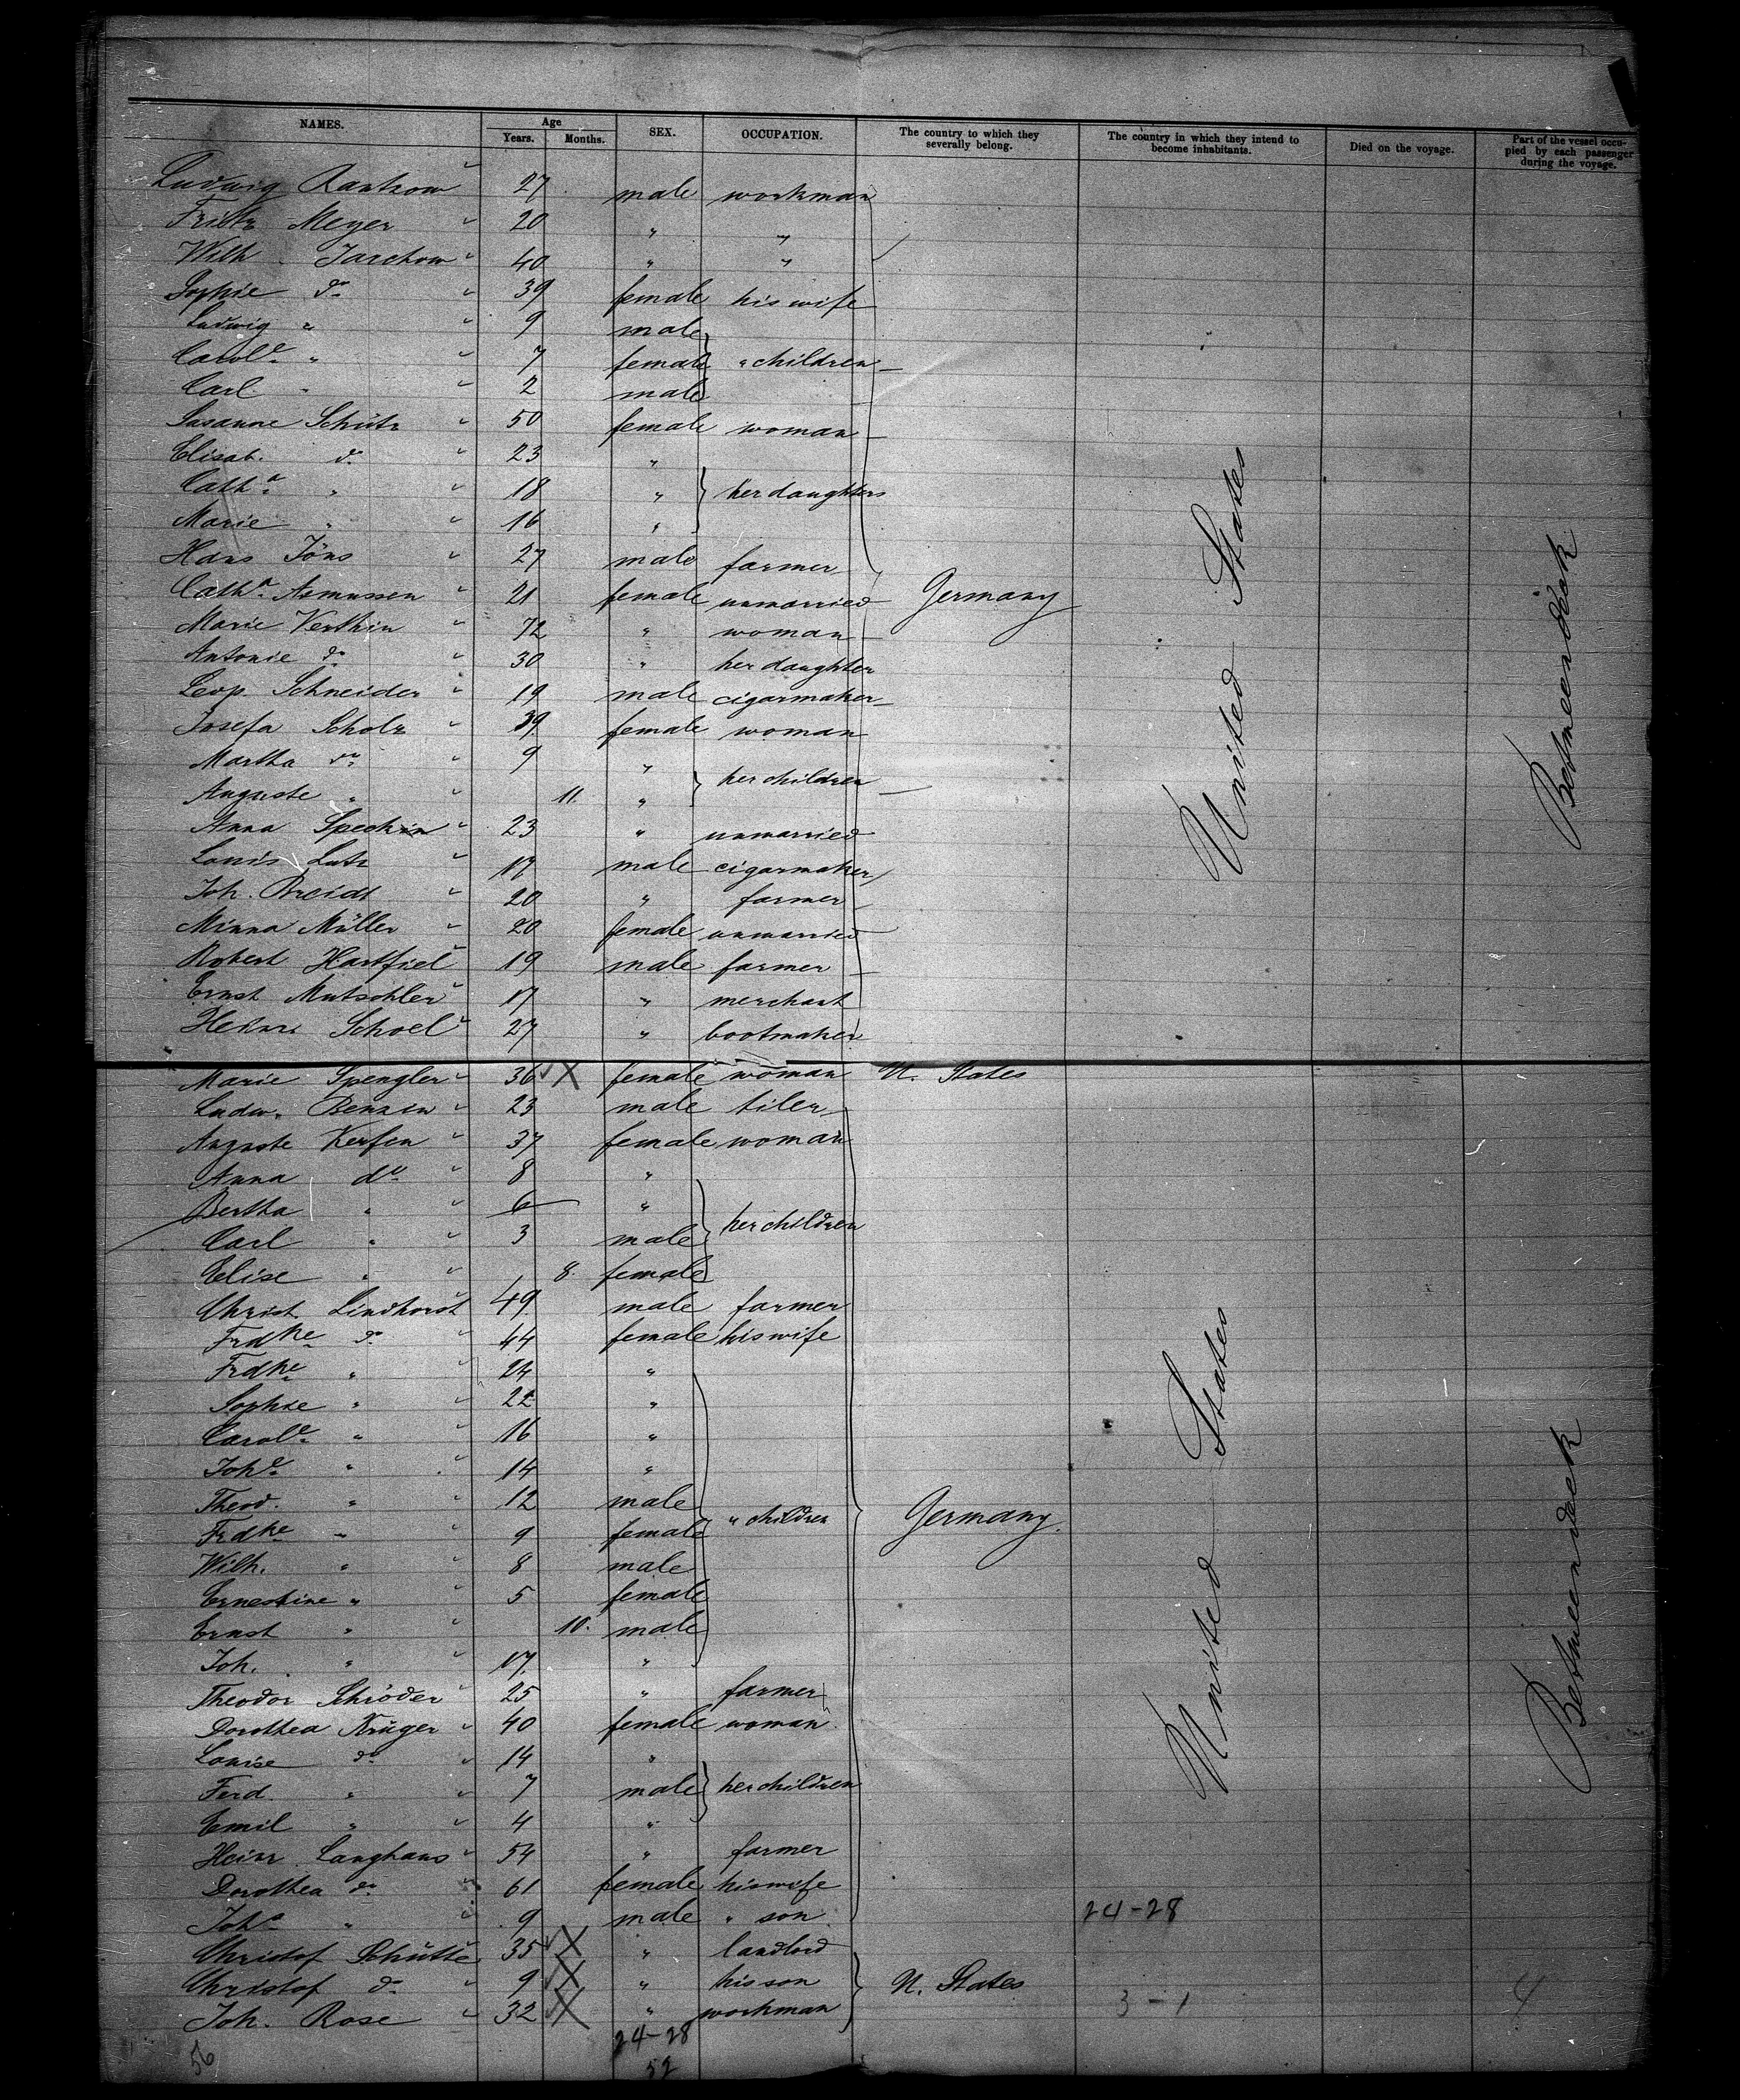 NAMES. Age Years. Months. SEX. OCCUPATION. The country to which they severally belong. The country in which they intend to become inhabitants. Died on the voyage. Part of the vessel occupied by each passenger during the voyage.
Ludwig Rantzow 27 male workman
Fritz Meyer 20 " "
Wilh. Jarchow 40 " "
Sophie do 39 female his wife
Ludwig " 9 male
Carole " 7 female " children
Carl " 2 male
Susanne Schütz 50 female woman
Elisab. do 23 "
Catha " 18 " her daughters
Marie " 16 "
Hans Jöns 27 male farmer
Catha Asmussen 21 female unmarried Germany
Marie Verthin 72 " woman
Antonie do 30 " her daughter
Leop. Schneider 19 male cigarmaker
Josefa Scholz 39 female woman
Martha do 9 " her children
Auguste " 11. "
Anna Spechin 23 " unmarried
Louis Lutz 17 male cigarmaker
Joh. Breidt 20 " farmer
Minna Müller 20 female unmarried
Robert Hartfiel 19 male farmer
Ernst Mutschler 17 " merchant
Heinr Schoel 27 " bootmaker
United States
Betweendeck
Marie Spengler 36 X female woman U. States
Ludw. Benzin 23 male tiler
Auguste Kerfen 37 female woman
Anna do 8 "
Bertha " 6 "
Carl " 3 male her children
Elise " 8. female
Christ. Lindhorst 49 male farmer
Frdke do 44 female his wife
Frdke " 24 "
Sophie " 22 "
Carole " 16 "
Johe " 14 "
Theod. " 12 male
Frdke " 9 female " children Germany.
Wilh. " 8 male
Ernestine " 5 female
Ernst " 10. male
Joh. " 17. "
Theodor Schröder 25 " farmer
Dorothea Krüger 40 female woman
Louise do 14 "
Ferd. " 7 male her children
Emil " 4 "
Heinr. Langhans 54 " farmer
Dorothea do 61 female his wife
Joh. " 9 male " son 24-28
Christof Schütte 35 X " landlord
Christof do 9 X " his son U. States
Joh. Rose 32 X " workman 3-1 4
United States
Betweendeck
24-28
56 52